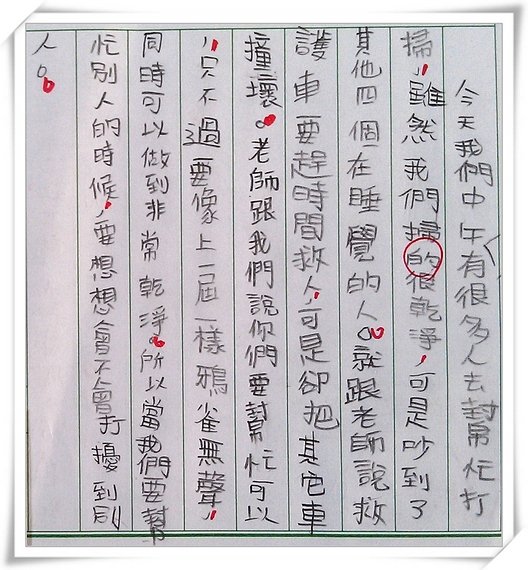 今天我們中午有很多人去幫忙打
掃，雖然我們掃的很乾淨，可是吵到了
其他四個在睡覺的人。就跟老師說救
護車要趕時間救人，可是卻把其它車
撞壞。老師跟我們說你們要幫忙可以
，只不過要像上一屆一樣鴉雀無聲，
同時可以做到非常乾淨。所以當我們要幫
忙別人的時候，要想想會不會打擾到別
人。